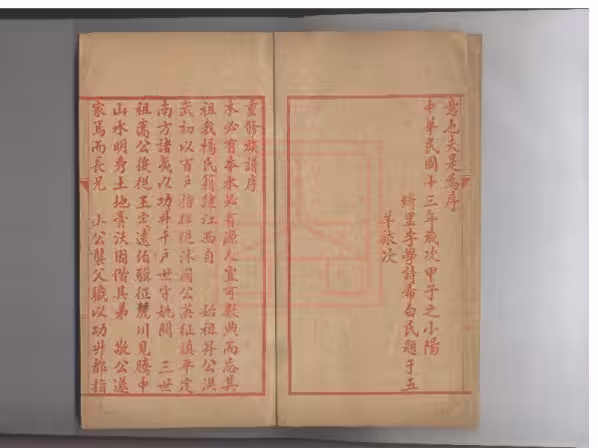 意也夫是為序
中華民國十三年歲次甲子之小陽
綺里李學詩希白氏題于五
羊旅次
重修族譜序
木必有本水必有源人豈可數典而忘其
祖我楊氏籍隸江西自 始祖昇公洪
武初以百戶指揮從沐國公英征滇平定
南方諸夷以功升千戶世守姚關 三世
祖嵩公後從王靖遠伯驥征麓川見騰中
山水明秀土地膏沃因偕其弟 敬公遂
家焉而長兄 山公襲父職以功升都指